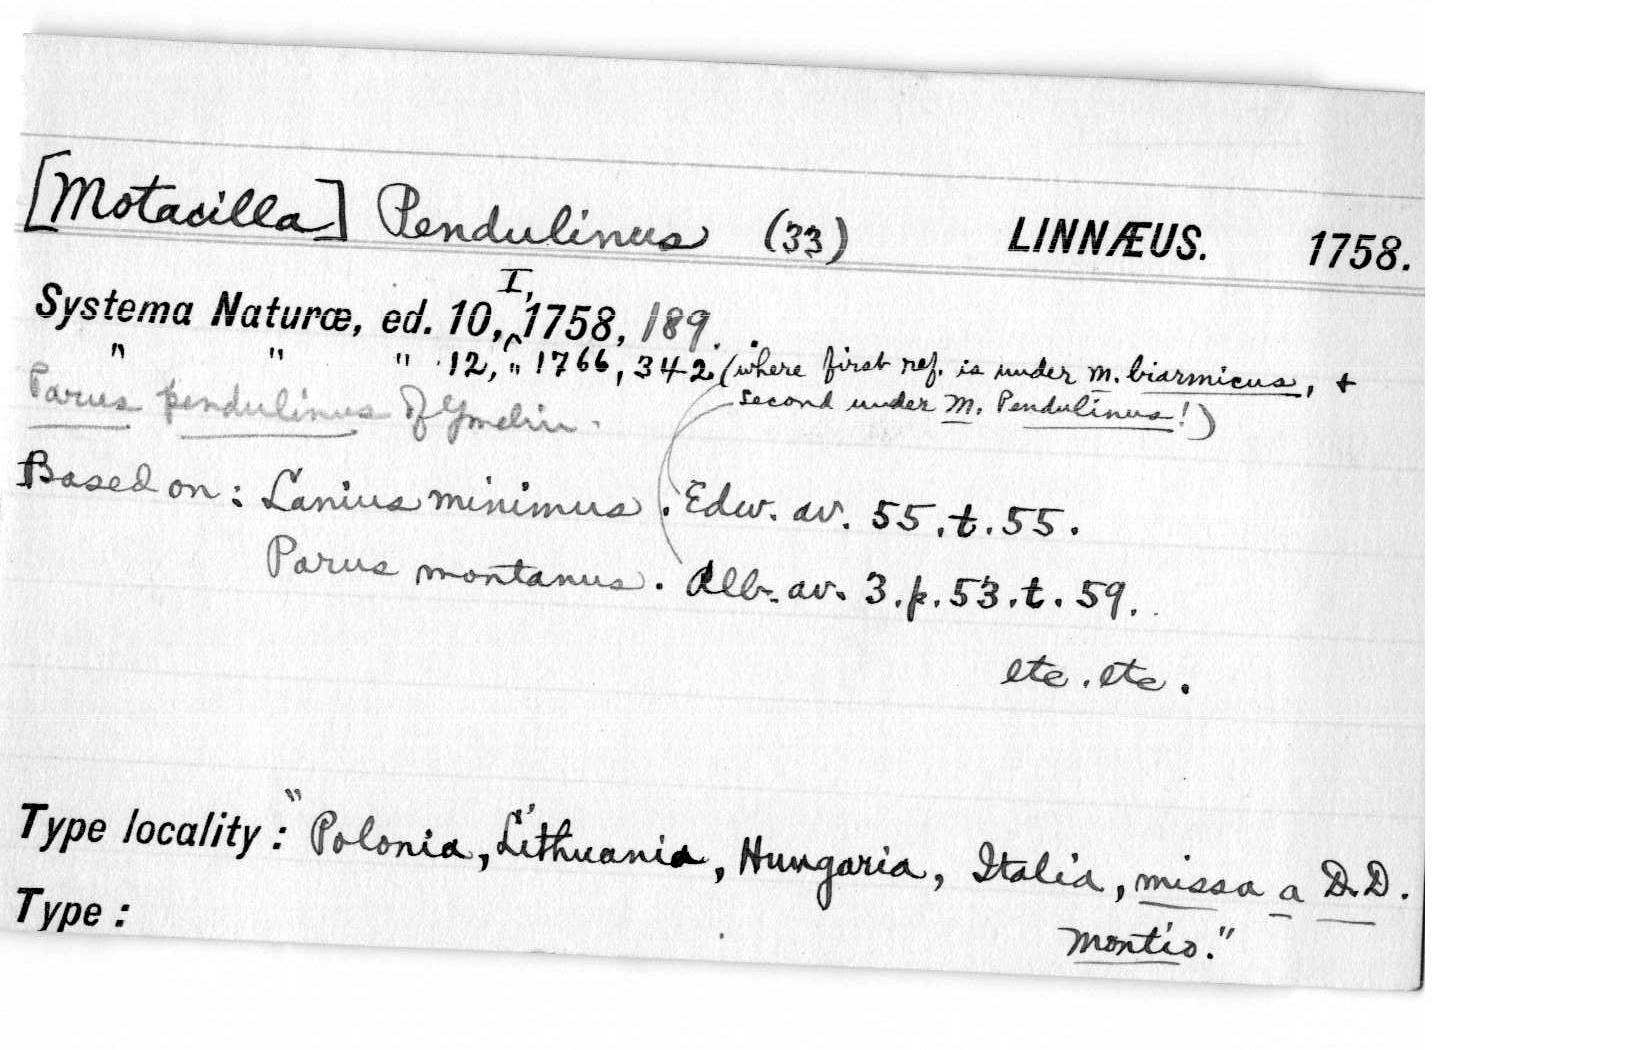 [Motacilla] Pendulinus (33) LINNÆUS. 1758.
Systema Naturæ, ed. 10, I, 1758, 189.
" " " 12, " 1766, 342 (where first ref. is under m. biarmicus, +
second under M. Pendulinus!)
Parus pendulinus of Gmelin.
Based on: Lanius minimus. Edw. av. 55. t. 55.
Parus montanus. Alb. av. 3. p. 53. t. 59.
etc. etc.
Type locality: "Polonia, Lithuania, Hungaria, Italia, missa a D.D.
Montio."
Type: